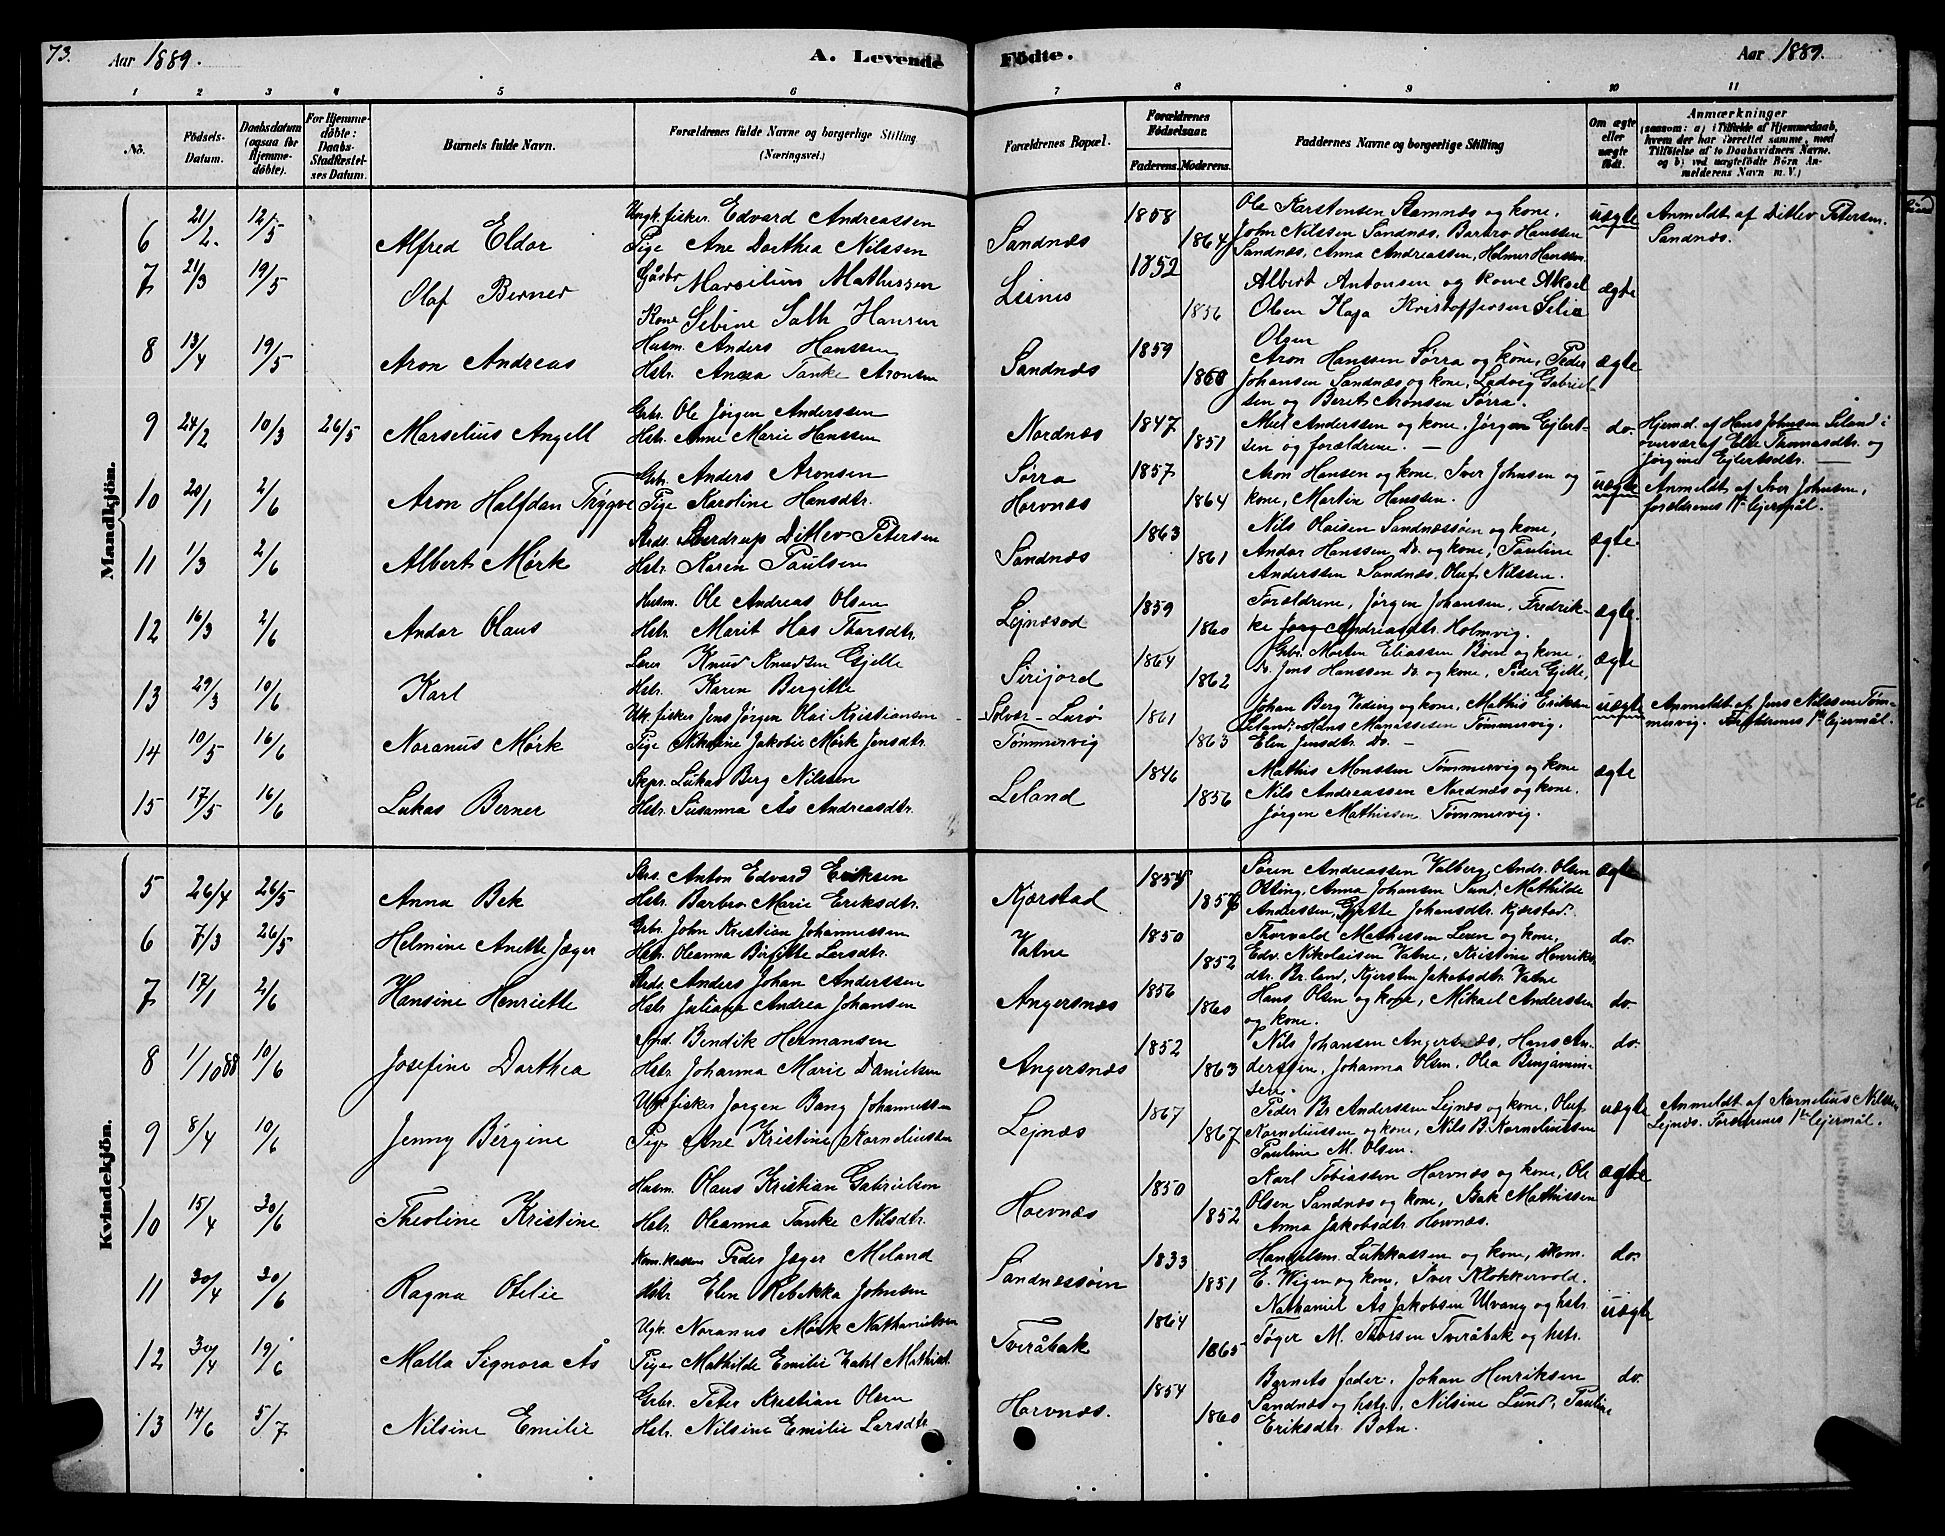 73. Aar 1889. A. Levende Födte. Aar 1889.
1 2 3 4 5 6 7 8 9 10 11
No. Födsels-Datum. Daabsdatum (ogsaa for Hjemme-döbte). For Hjemme-döbte: Daabs-Stadfæstel-ses Datum. Barnets fulde Navn. Forældrenes fulde Navne og borgerlige Stilling (Næringsvei.) Forældrenes Bopæl. Forældrenes Födselsaar. Faderens. Moderens. Faddernes Navne og borgerlige Stilling Om ægte eller uægte födt. Anmærkninger (saasom: a) i Tilfælde af Hjemmedaab, hvem der har forrettet samme, med Tilföielse af to Daabsvidners Navne. og b) ved uægtefödte Börn An-melderens Navn m. V.)
Mandkjön.
6 21/2. 12/5 Alfred Eldor
Ungk. fisker. Edvard Andreassen
Pige Ane Dorthea Nilssen
Sandnæs 1858 1864
Ole Karstensen Stamnæs og kone,
John Nilssen Sandnæs, Barbro Hanssen
Sandnæs, Anna Andreassen, Helmer Hanssen.
uægte Anmeldt af Ditlev Petersen.
Sandnæs.
7 21/3 19/5 Olaf Berner
Gårbr. Marselius Mathissen
Kone Sibine Hansen
Leines 1852 1856
Albert Antonsen og kone Aksel
Olsen Kaja Kristoffersen Silia
Olsen
ægte
8 13/4 19/5 Aron Andreas
Husm. Anders Hanssen
Hstr. Anna Tanke Aronsen
Sandnæs 1859 1860
Aron Hanssen Sørra og kone, Peder
Johansen Sandnæs og kone, Ludvig Gabriel-
sen og Beret Aronsen Sørra.
ægte
9 24/2 10/3 26/5 Marselius Angell
Grbr. Ole Jørgen Anderssen
Hstr. Anne Marie Hanssen
Nordnæs 1847 1851
Anderssen og kone, Jørgen Ejlert-
sen og forældrene. —
do. Hjemd. af Hans Johnsen Leland i
overvær af Else Thomasdtr. og
Jørgine Ejlertsdtr. —
10 20/1 2/6 Aron Halfdan Trÿgve
Grbr. Anders Aronsen
Pige Karoline Hansdtr.
Sørra
Horvnæs 1857 1864
Aron Hansen og kone, Iver Johnsen og
kone, Martin Hanssen.
uægte Anmeldt af Iver Johnsen,
forældrenes 1ste lejermål.
11 1/3 2/6 Albert Mørk
Sverdrup Ditlev Petersen
Hstr. Karen Paulsen
Sandnæs 1863 1861
Nils Olaisen Sandnæssøen og kone,
Andor Hanssen do. og kone, Pauline
Anderssen Sandnæs. Oluf Nilssen.
ægte
12 16/3 2/6 Andor Olaus
Husm. Ole Andreas Olsen
Hstr. Marit Thorsdtr.
Lejnæsod 1859 1860
Forældrene, Jørgen Johansen, Fredrik-
ke Andreasdtr. Holmvig.
ægte
13 29/3 10/6 Karl
Knud Knudsen Gjelle
Hstr. Karen Bergitte
Sirijord 1864 1862
Grbr. Morten Eliassen Bøen og kone,
do. Jens Hanssen do. og kone, Peder Gjelle,
ægte
14 10/5 16/6 Noranus Mørk
fisker Jens Jørgen Olai Kristiansen
Pige Nikoline Jakobie Mørk Jensdtr.
Solvær-Lurø
Tømmervig 1861 1863
Johan Berg Veding og kone, Mathis Eriksen
Leland, Hans Manassesen Tømmervig.
Elen Jensdtr. do. —
uægte Anmeldt af Jens Nilssen Tøm-
mervig. Forældrenes 1ste lejermål.
15 17/5 16/6 Lukas Berner
Skpr. Lukas Berg Nilssen
Hstr. Susanna Ås Andreasdtr.
Leland 1846 1856
Mathis Monssen Tømmervig og kone
Nils Andreassen Nordnæs og kone.
Jørgen Mathissen Tømmervig.
ægte
Kvindekjön.
5 26/4 26/5 Anna Bek
Anton Edvard Eriksen
Hstr. Barbro Marie Eriksdtr.
Kjærstad
Søren Andreassen Valberg, Andr. Olsen
Anna Johansen Sund, Mathilde
Anderssen, Johansdtr. Kjærstad.
ægte
6 7/3 26/5 Helmine Anette Jæger
Grbr. John Kristian Johannessen
Hstr. Oleanna Birgitte Larsdtr.
Vatne 1850 1852
Thorvald Mathissen Leren og kone,
Edv. Nikolaisen Vatne, Kristine Henriks-
dtr. Br.land, Kjersten Jakobsdtr. Vatne
do.
7 17/1 2/6 Hansine Henriette
Anders Johan Anderssen
Hstr. Juliana Andrea Johansen
Angersnæs 1856 1860
Hans Olsen og kone, Mikael Anderssen
og kone.
do.
8 1/10 88 10/6 Josefine Dorthea
Bendik Hermansen
Hstr. Johanna Marie Danielsen
Angersnæs 1852 1863
Nils Johansen Angersnæs, Hans An-
derssen, Johanna Olsen, Olea Benjamin-
sen.
do.
9 8/4 10/6 Jenny Bergine
fisker Jørgen Bang Johannessen
Pige Ane Kristine Korneliussen
Lejnæs 1867 1867
Peder Br. Anderssen Lejnæs og kone, Oluf
Korneliussen og kone, Nils B. Korneliussen
Pauline M. Olsen.
uægte Anmeldt af Kornelius Nilssen
Lejnæs. Forældrenes 1ste lejermål.
10 15/4 30/6 Theoline Kristine
Husm. Olaus Kristian Gabrielsen
Hstr. Oleanna Tanke Nilsdtr.
Horvnæs 1850 1852
Karl Tobiassen Horvnæs og kone, Ole
Olsen Sandnæs og kone, Bak Mathissen
Anna Jakobsdtr. Horvnæs.
ægte
11 30/4 30/6 Ragna Otelie
Peder Jæger Meland
Hstr. Elen Rebekka Johnsen
Sandnæssøen 1833 1851
Handelsm. Lukkassen og kone, skom.
E. Wigen og kone, Iver Klokkervold.
do.
12 30/4 19/6 Malla Signora Ås
Ugk. Noranus Mørk Nathanielsen
Pige Mathilde Emilie Zahl Mathisd.
Tveråbak 1864 1865
Nathaniel Ås Jakobsen Ulvang og hstr.
Tøger M. Thorsen Tveråbak og hstr.
uægte
13 14/6 5/7 Nilsine Emilie
Grbr. Peter Kristian Olsen
Hstr. Nilsine Emilie Larsdtr.
Horvnæs. 1854 1860
Barnets fader, Johan Henriksen
Sandnæs og hstr., Nilsine Lund, Pauline
Eriksdtr. Botn.
do.